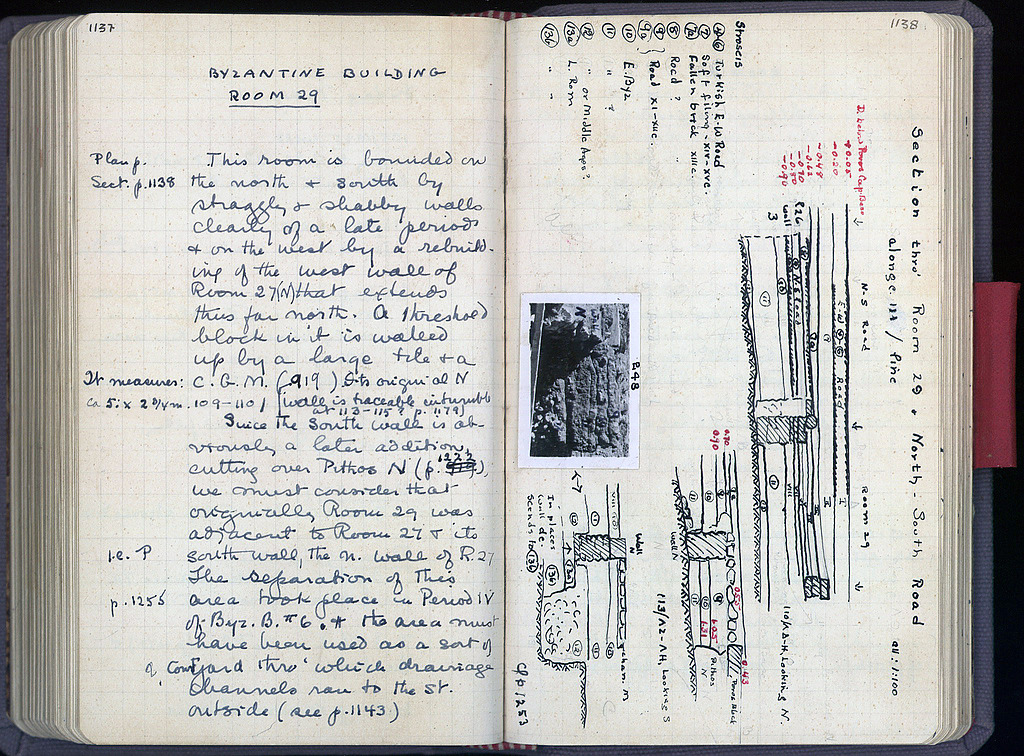 1137
BYZANTINE BUILDING
ROOM 29
Plan p.
Sect. p.1138
This room is bounded on
the north + south by
straggly + shabby walls
clearly of a late period
+ on the west by a rebuild-
ing of the west wall of
Room 27(N) that extends
thus far north. A threshold
block in it is walled
up by a large tile + a
It measures:
C.G.M. (919) Its original N
ca 5: x 2
109-110/ wall is traceable
at 113-115? p. 1179)
Since the South wall is ob-
viously a later addition,
cutting over Pithos N (p. 1222),
we must consider that
originally Room 29 was
adjacent to Room 27 + its
i.e. P
south wall, the n. wall of R.27
The separation of this
p.1255
area took place in Period IV
of Byz. B. # 6. + the area must
have been used as a sort of
yard thro' which drainage
channels ran to the st.
outside (see p.1143)
1138
Section thro' Room 29 + North-South Road
along / line
all: 1:100
Stroseis
Turkish E.W Road
7 Soft filling - XIV-XVc.
7a Fallen brick XIIIc.
8 Road ? "
9
9a Road XI-XIIc.
10 E. Byz
11 " ?
12 " or Middle Ages?
13a L. Rom
13b " "
D. below Poros Cap Base
+0.05
-0.20
-0.48
-0.62
-0.70
-0.80
-0.90
N-S Road
Room 29
Wall
3
R26
E-W Road
Looking N
R48
0.70
0.90
Wall N
0.55
0.43
Poros Block
Pithos
N
1.05
1.31
113/ΛΖ-ΛΗ, Looking S
Wall
N
In places
wall de-
scends to 13b
cf p 1253